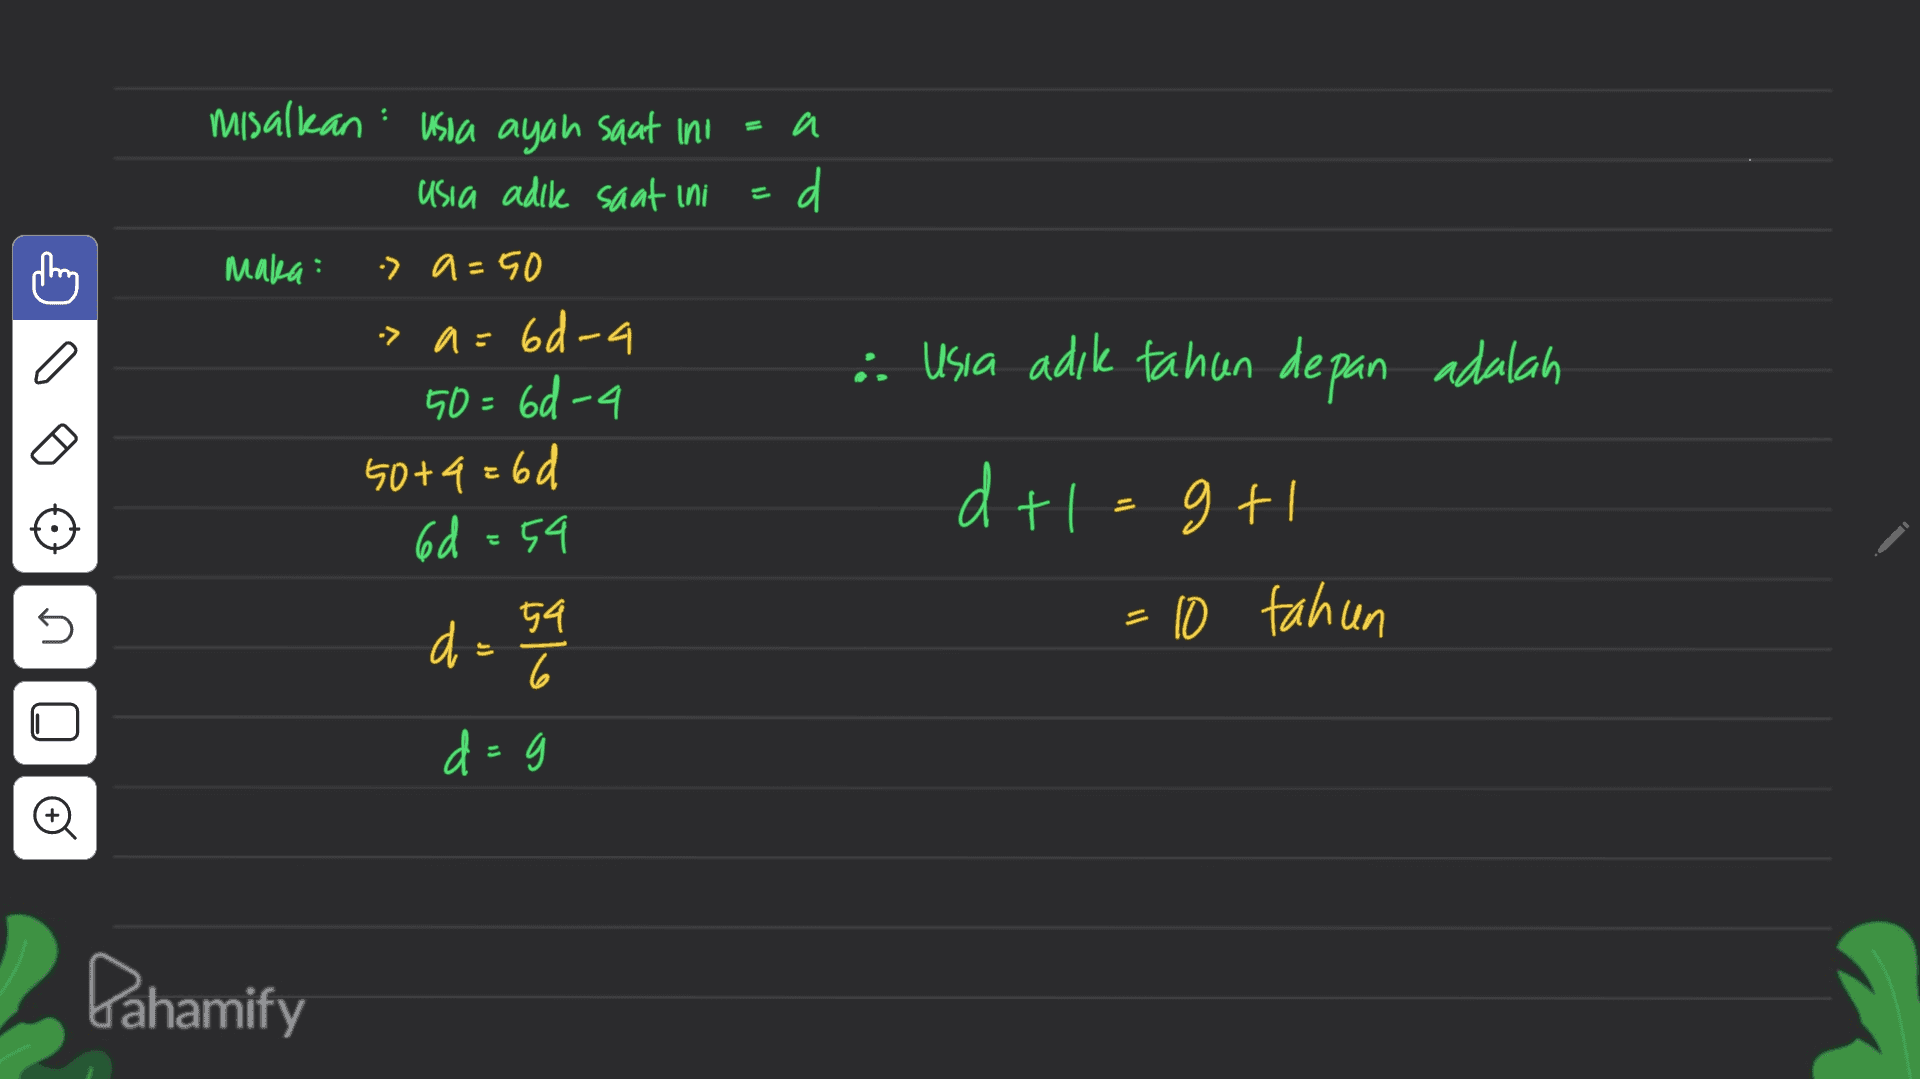 misalkan : usia ayah saat ini = a
usia adik saat ini = d
maka : -> a = 50
-> a = 6d - 4
50 = 6d - 4
50 + 4 = 6d
6d = 54
d = 54/6
d = 9
∴ Usia adik tahun depan adalah
d + 1 = 9 + 1
= 10 tahun
Pahamify